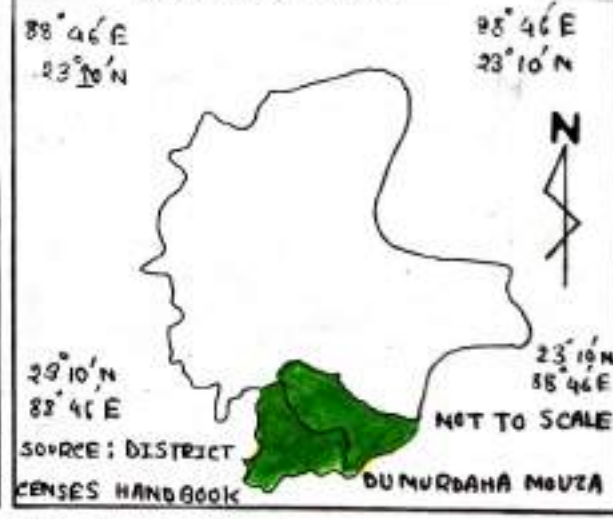 88° 46' E
23° 10' N
98° 46' E
23° 10' N
N
23° 10' N
88° 46' E
23° 10' N
88° 46' E
NOT TO SCALE
SOURCE : DISTRICT
CENSES HANDBOOK
DUMURDAHA MOUZA